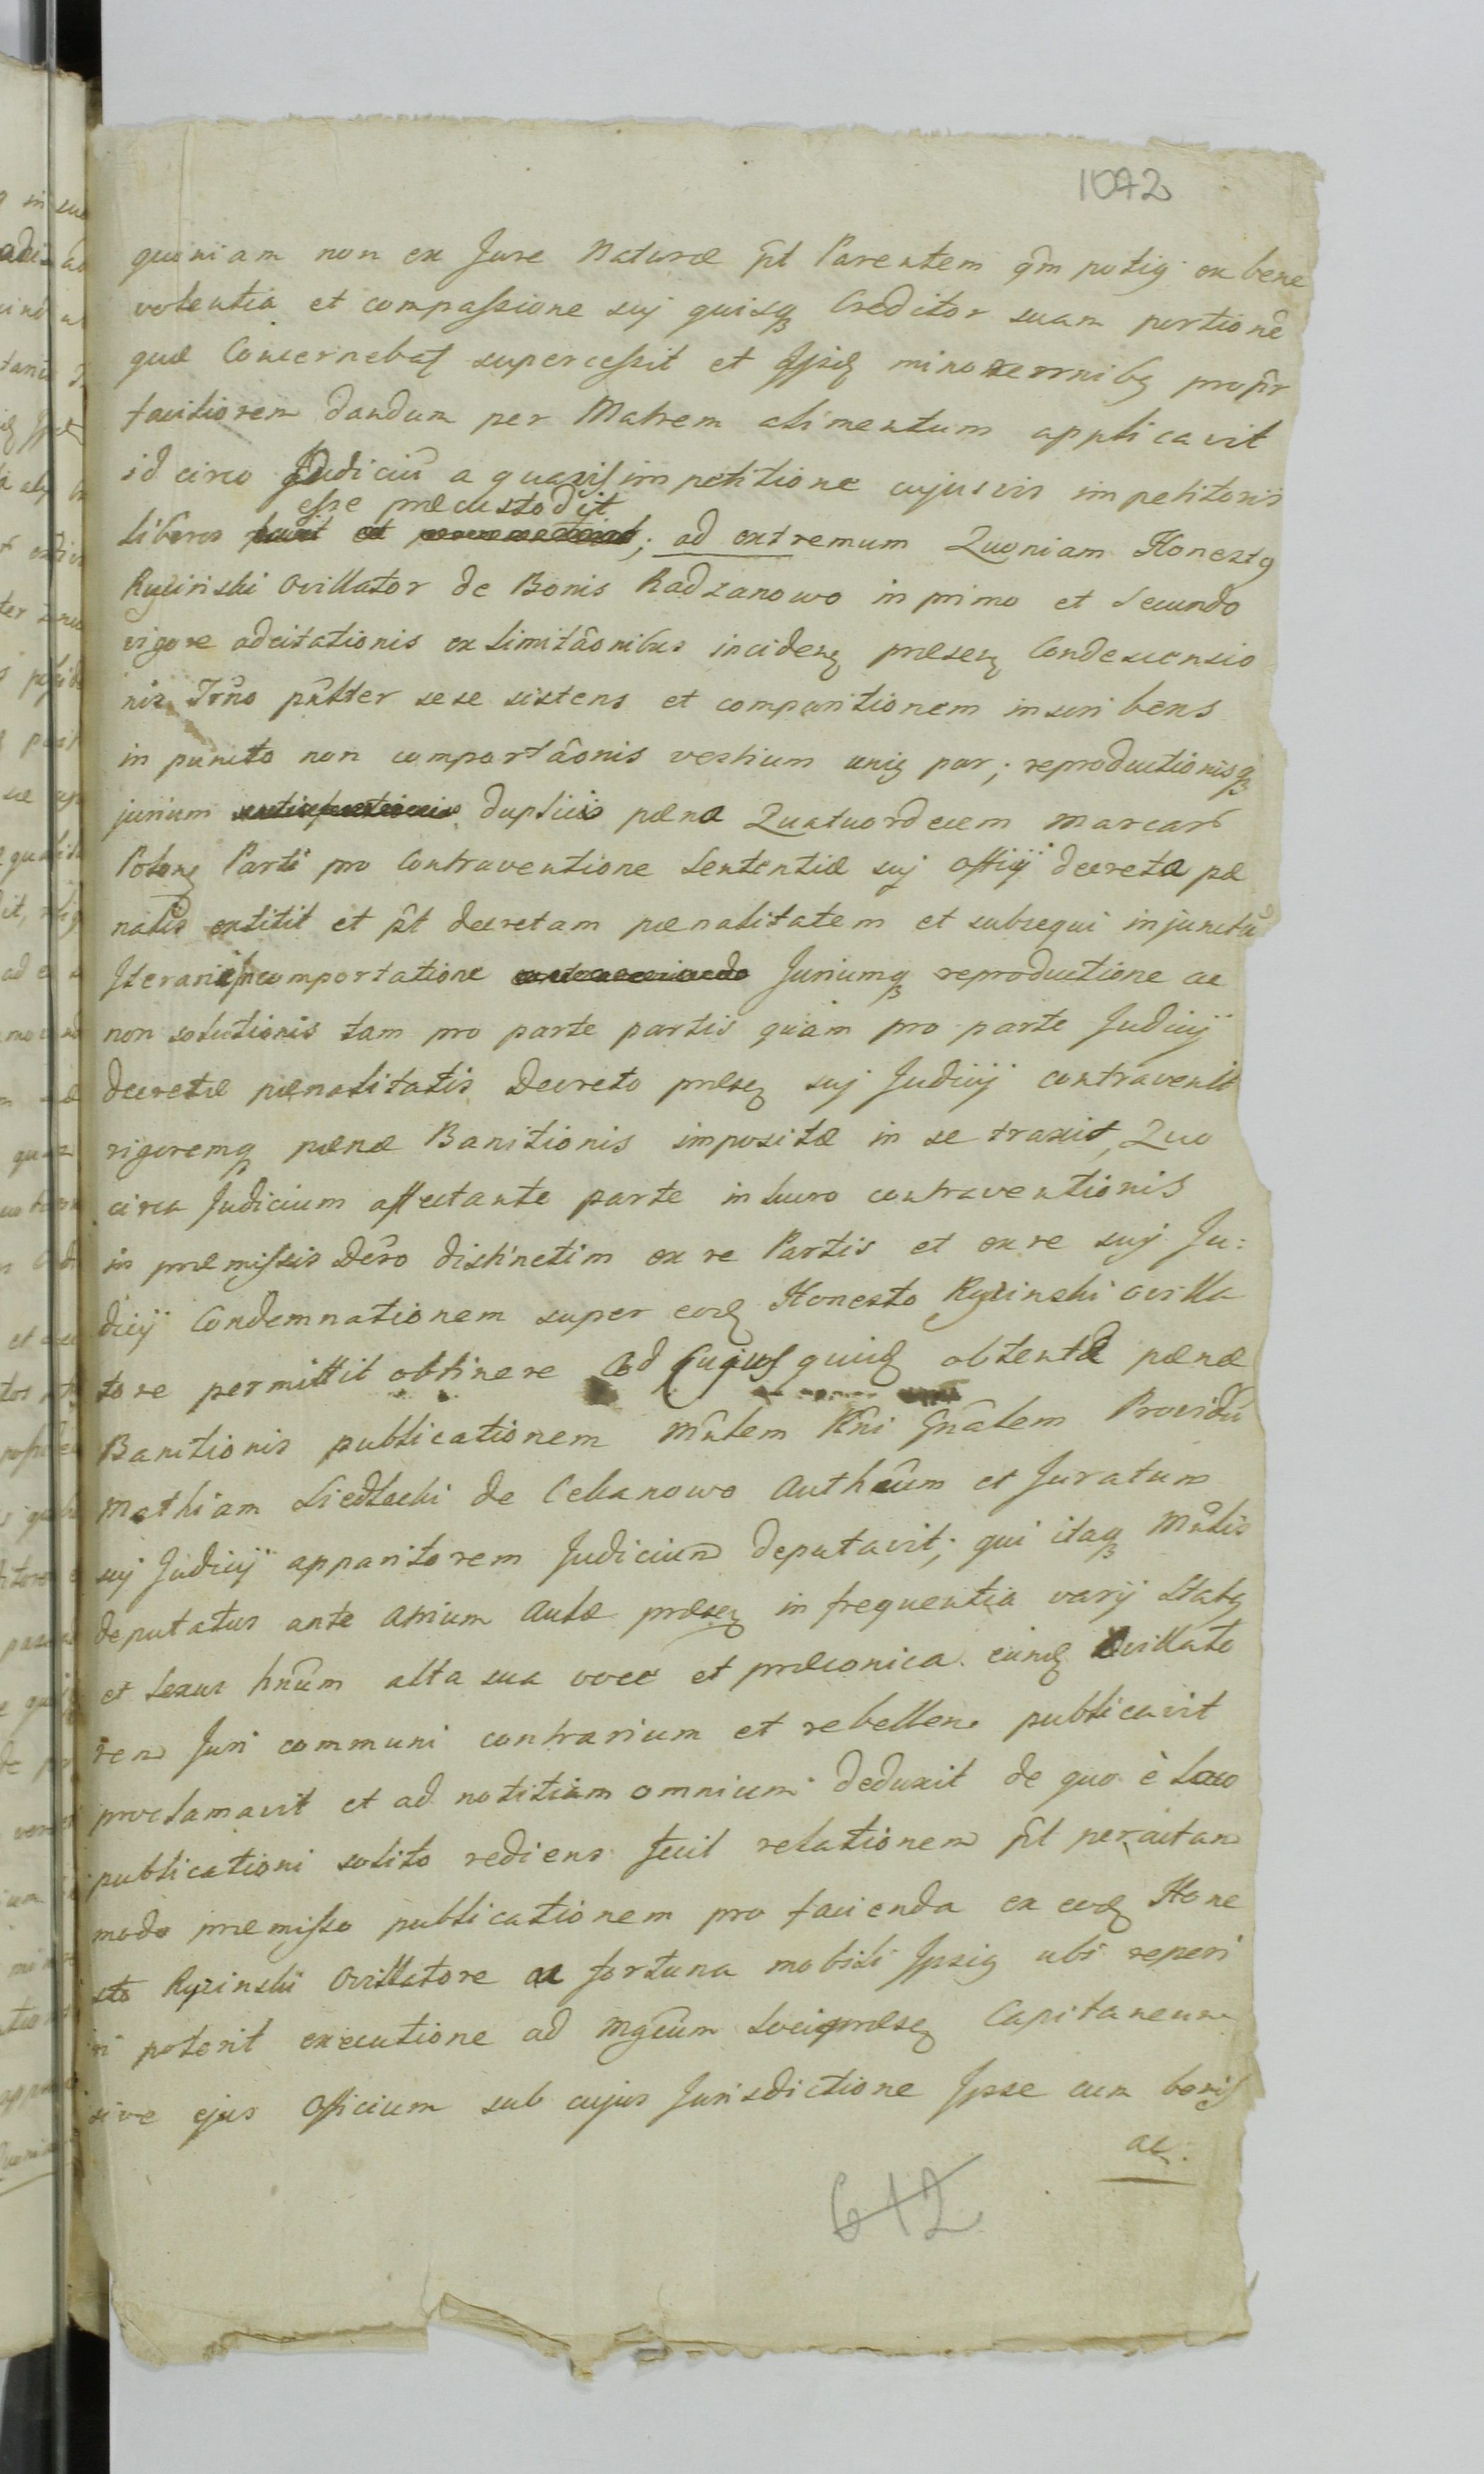 1042
quoniam non ex Jure Naturæ pt Parentem qm potig ex bene
volentia et compassione suj quisq Creditor suam portione
quæ Concernebat supercessit et Ipsiq minorennibq propr
facitiorem dandum per Matrem alimentum applicavit
id circo Judiciu a quavis impetitione cujusvis impetitoris
esse præcustodit
liberos ; ad extremum Quoniam Honestq
Ryzinski Ovillator de Bonis Radzanowo in primo et Secundo
vigore adcitationis ex limitaonibus incidenq præsenq Condescensio
nis Trno pnlter sese sistens et comparitionem inscribens
in puncto non comportaonis vestium unig par; reproductionisq
jurium duplicis pænæ Quatuordecem marcar
Polonq Parti pro Contraventione Sententiæ suj Officij decretæ pæ
nalis extitit et pt decretam pænalitatem et subsequi injuncta
Iteraria incomportatione Juriumq reproductione ac
non solutionis tam pro parte partis quam pro parte Judicij
decretæ pænalitatis Decreto præsenq suj Judicij contravenit
rigoremq pænæ Banitionis impositæ in se traxit, Quo
circa Judicium affectante parte in lucro contraventionis
in præmissis Dero distinctim ex re Partis et ex re suj Ju:
dicij Condemnationem super eodq Honesto Ryzinski Ovilla
tore permittit obtinere Ad Cujus quidq obtentæ pænæ
Banitionis publicationem Mnlem Rni Gnalem Providu
Mathiam Siedlecki de Cekanowo Autheum et Juratum
suj Judicij apparitorem Judicium deputavit; qui itaq Mnlis
deputatus ante Atrium Aulæ præsenq in frequentia varij Statq
et Sexus hnum alta sua voce et præconica eundq Ovillato
rem Juri communi contrarium et rebellem publicavit
proclamavit et ad notitiam omnium deduxit de quo è Loco
publicationi solito rediens fecit relationem pt peractam
modo præmisso publicationem pro facienda ex eodq Hone
sto Ryzinski Ovillatore ac fortuna mobili Ipsig ubi reperi
ri poterit executione ad Mgcum Loci præsenq Capitaneum
sive ejus Officium sub cujus Jurisdictione Ipse cum bonis
ac:
612